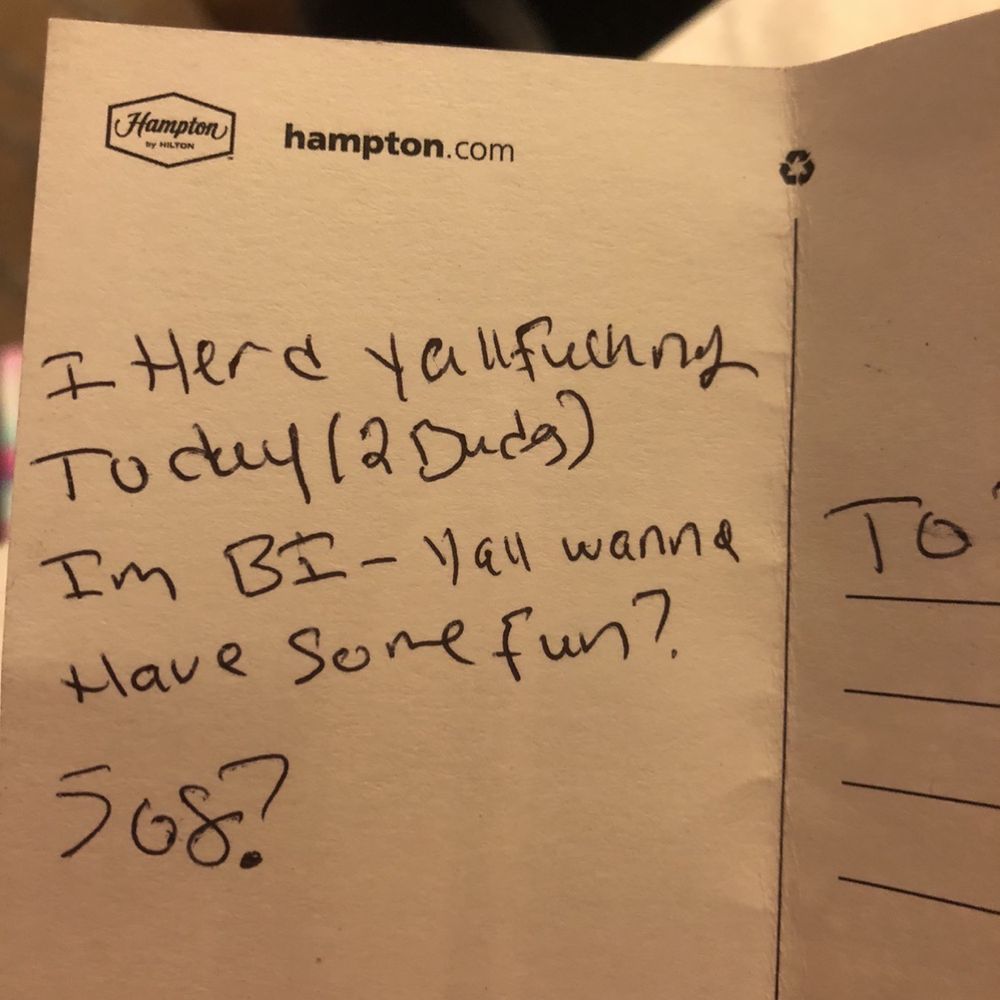 Hampton
by HILTON
hampton.com
I Herd yall fucking
Today (2 Dudes)
Im BI - Yall wanna
Have Some fun?
508?
TO